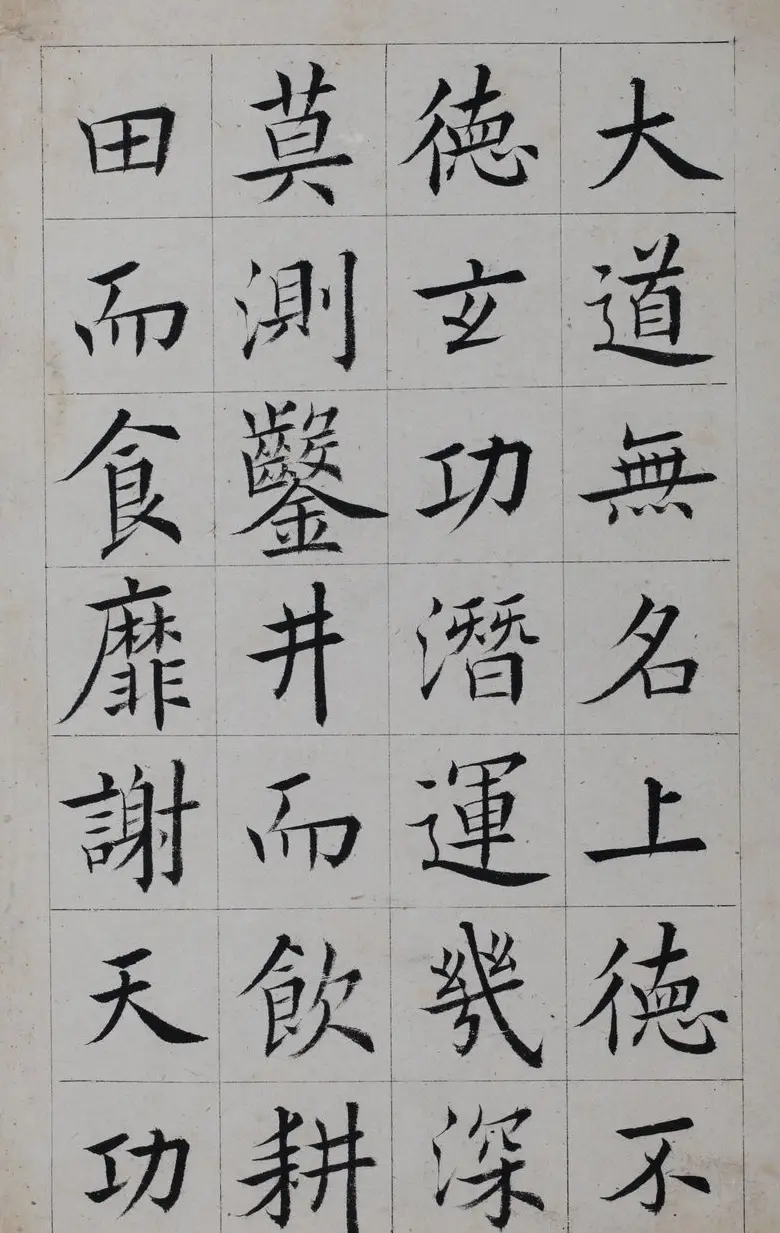 大道無名上德不
德玄功潛運幾深
莫測鑿井而飲耕
田而食靡謝天功